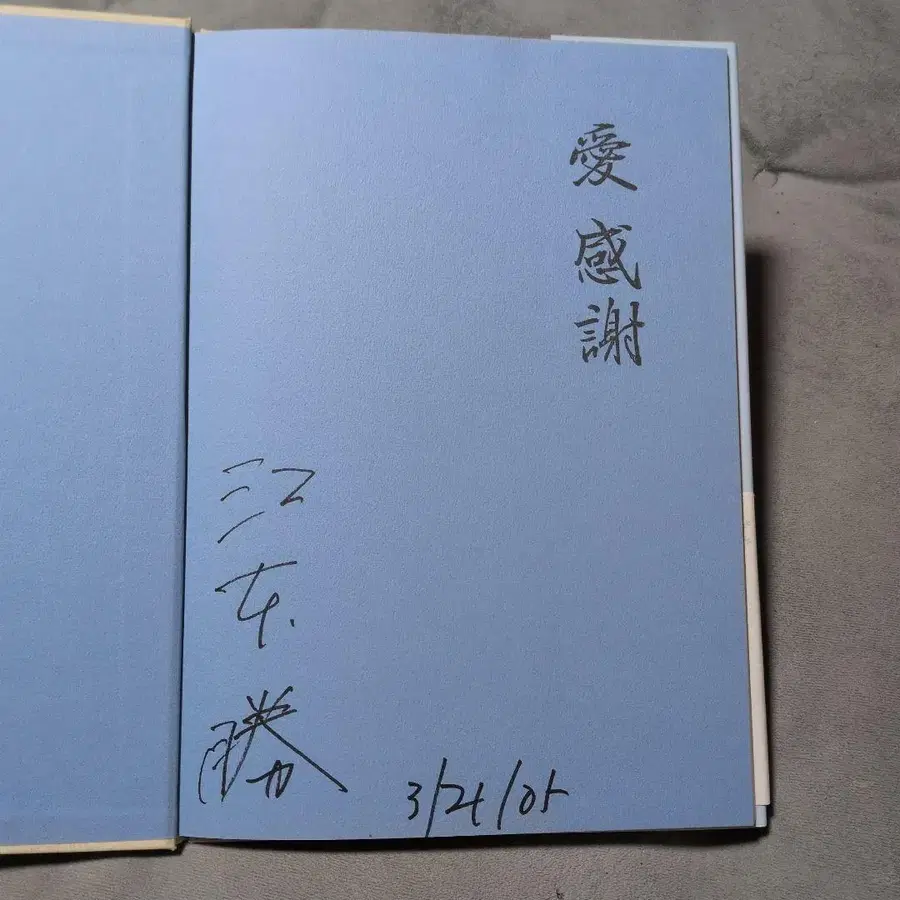 愛 感謝
江本勝
3/24/05